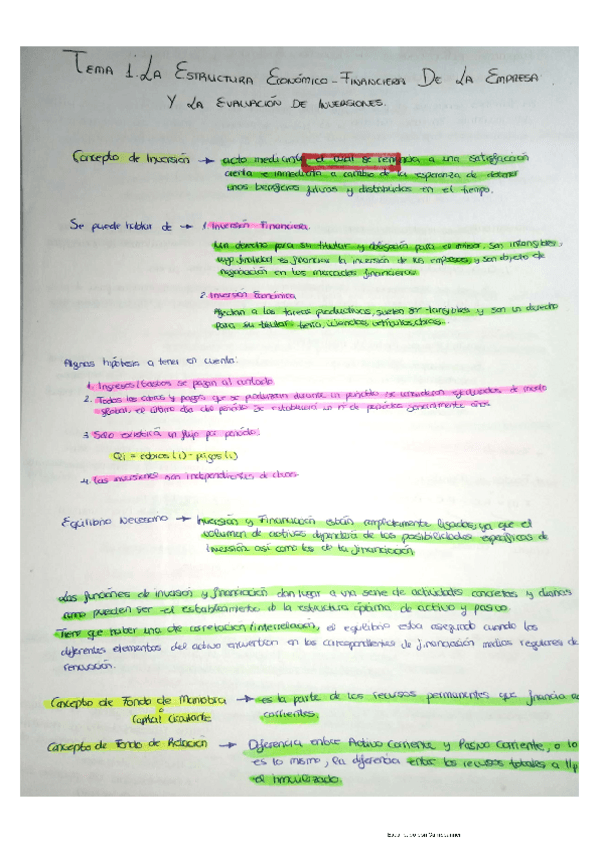 Tema 1. La Estructura Económico-Financiera De La Empresa
Y La Evaluación De Inversiones.
Concepto de Inversión → acto mediante el cual se renuncia a una satisfacción
cierta e inmediata a cambio de la esperanza de obtener
unos beneficios futuros y distribuidos en el tiempo.
Se puede hablar de → 1. Inversión Financiera.
Un derecho para su titular y obligación para el emisor, son intangibles,
cuya finalidad es financiar la inversión de las empresas, y son objeto de
negociación en los mercados financieros
2. Inversión Económica
Afectan a las tareas productivas, suelen ser tangibles y son un derecho
para su titular: tierra, viviendas, vehículos,
Algunas hipótesis a tener en cuenta:
1. Ingresos/Gastos se pagan al contado
2. Todos los cobros y pagos que se producirán durante un periodo se consideran ejecutados de modo
global, el último día del periodo. Se establecerá un nº de periodos generalmente años
3. Solo existirá un flujo por periodo:
Qi = cobros (i) - pagos (i)
4. Las inversiones son independientes de
Equilibrio Necesario → Inversión y Financiación están ampliamente ligadas, ya que el
volumen de activos dependerá de las posibilidades específicas de
inversión así como los de la financiación.
Las funciones de inversión y financiación dan lugar a una serie de actividades concretas y diarias
como pueden ser el establecimiento de la estructura óptima de activo y pasivo.
Tiene que haber una correlación/interrelación, el equilibrio esta asegurado cuando los
diferentes elementos del activo encuentran en los correspondientes de financiación medios regulares de
renovación.
Concepto de Fondo de Maniobra → es la parte de los recursos permanentes que financia
o
Capital Circulante
corrientes.
Concepto de Fondo de Rotación → Diferencia entre Activo Corriente y Pasivo Corriente, o lo
es lo mismo, la diferencia entre los recursos totales a l/p
el inmovilizado.